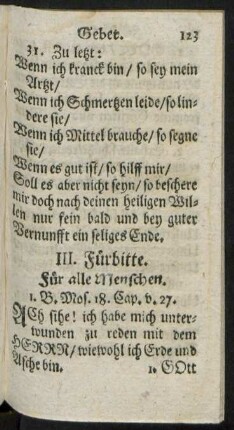 Gebet. 123
31. Zu letzt:
Wenn ich kranck bin/ so sey mein
Artzt/
Wenn ich Schmertzen leide/ so lin-
dere sie/
Wenn ich Mittel brauche/ so segne
sie/
Wenn es gut ist/ so hilff mir/
Soll es aber nicht seyn/ so beschere
mir doch nach deinen heiligen Wil-
len nur fein bald und bey guter
Vernunfft ein seliges Ende.
III. Fürbitte.
Für alle Menschen.
1. B. Mos. 18. Cap. v. 27.
ACh sihe! ich habe mich unter-
wunden zu reden mit dem
HERRN/ wiewohl ich Erde und
Asche bin. 1. GOtt